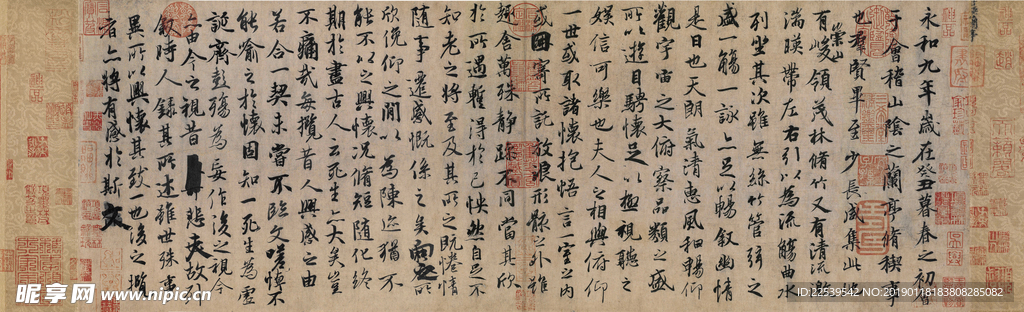 永和九年歲在癸丑暮春之初會
于會稽山陰之蘭亭脩禊事
也羣賢畢至少長咸集此地
有崇山峻領茂林脩竹又有清流激
湍暎帶左右引以為流觴曲水
列坐其次雖無絲竹管弦之
盛一觴一詠亦足以暢敘幽情
是日也天朗氣清惠風和暢仰
觀宇宙之大俯察品類之盛
所以遊目騁懷足以極視聽之
娛信可樂也夫人之相與俯仰
一世或取諸懷抱悟言一室之內
或因寄所託放浪形骸之外雖
趣舍萬殊靜躁不同當其欣
於所遇蹔得於己怏然自足不
知老之將至及其所之既惓情
隨事遷感慨係之矣向之所
欣俛仰之閒以為陳迹猶不
能不以之興懷況脩短隨化終
期於盡古人云死生亦大矣豈
不痛哉每攬昔人興感之由
若合一契未嘗不臨文嗟悼不
能喻之於懷固知一死生為虛
誕齊彭殤為妄作後之視今
亦由今之視昔悲夫故列
敘時人錄其所述雖世殊事
異所以興懷其致一也後之攬
者亦將有感於斯文
昵享网 www.nipic.cn
ID:22539542 NO:20190118183808285082